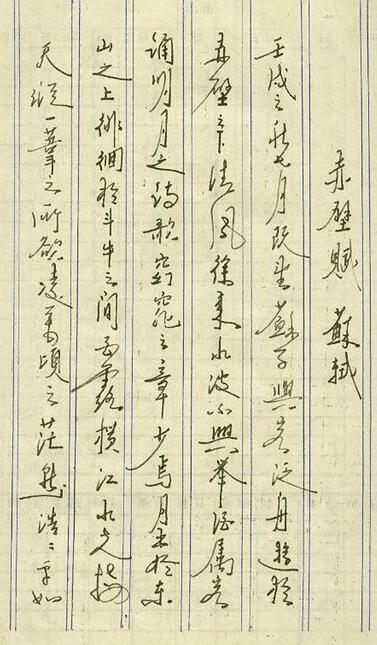 赤壁賦 蘇軾
壬戌之秋七月既望蘇子與客泛舟遊於
赤壁之下清風徐來水波不興舉酒屬客
誦明月之詩歌窈窕之章少焉月出於東
山之上徘徊於斗牛之間白露橫江水光接
天縱一葦之所欲凌萬頃之茫然浩〻乎如